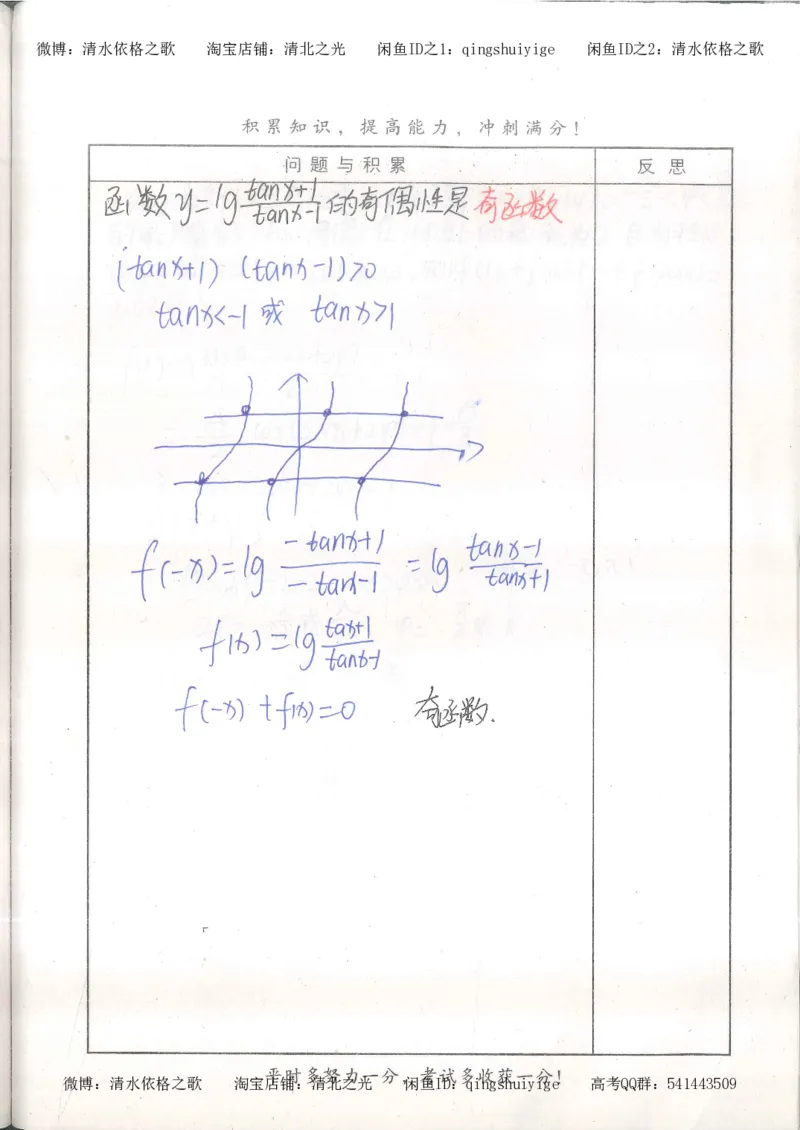 微博：清水依格之歌 淘宝店铺：清北之光 闲鱼ID之1：qingshuiyige 闲鱼ID之2：清水依格之歌
积累知识，提高能力，冲刺满分！
问题与积累 反思
函数y=lg (tanx+1)/(tanx-1) 的奇偶性是 奇函数
(tanx+1)(tanx-1)>0
tanx<-1 或 tanx>1
f(-x)=lg (-tanx+1)/(-tanx-1) =lg (tanx-1)/(tanx+1)
f(x)=lg (tax+1)/(tanx-1)
f(-x)+f(x)=0 奇函数.
平时多努力一分，考试多收获一分！
微博：清水依格之歌 淘宝店铺：清北之光 闲鱼ID：qingshuiyige 高考QQ群：541443509